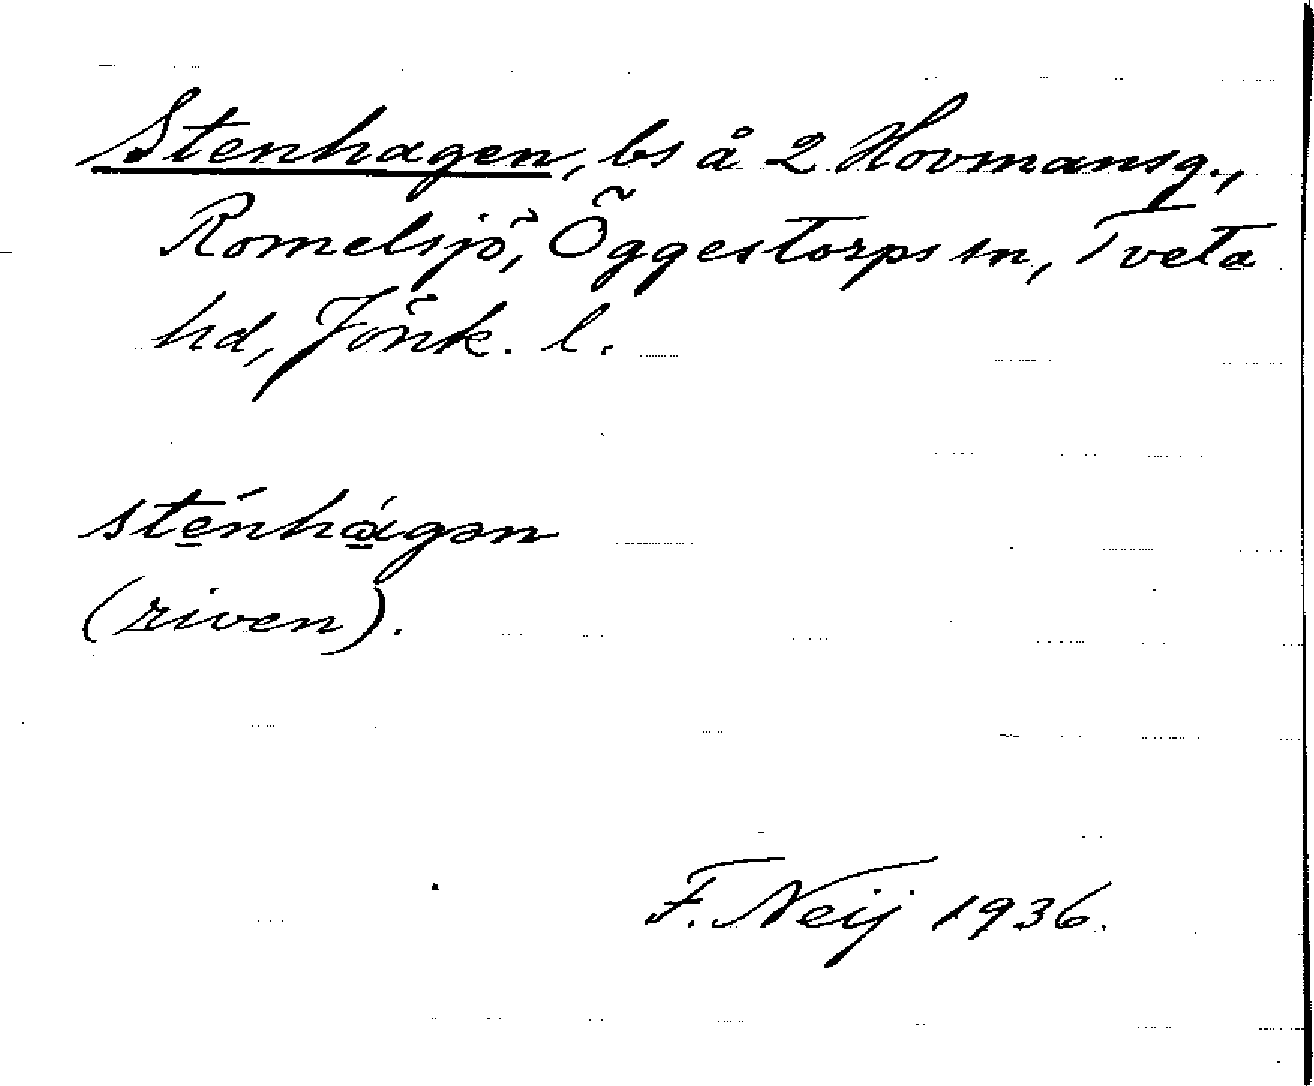 Stenhagen, bs å 2 Hovmansg.,
Romelsjö, Öggestorps sn, Tveta
hd, Jönk. l.
sténhágən
(riven).
F. Neij 1936.